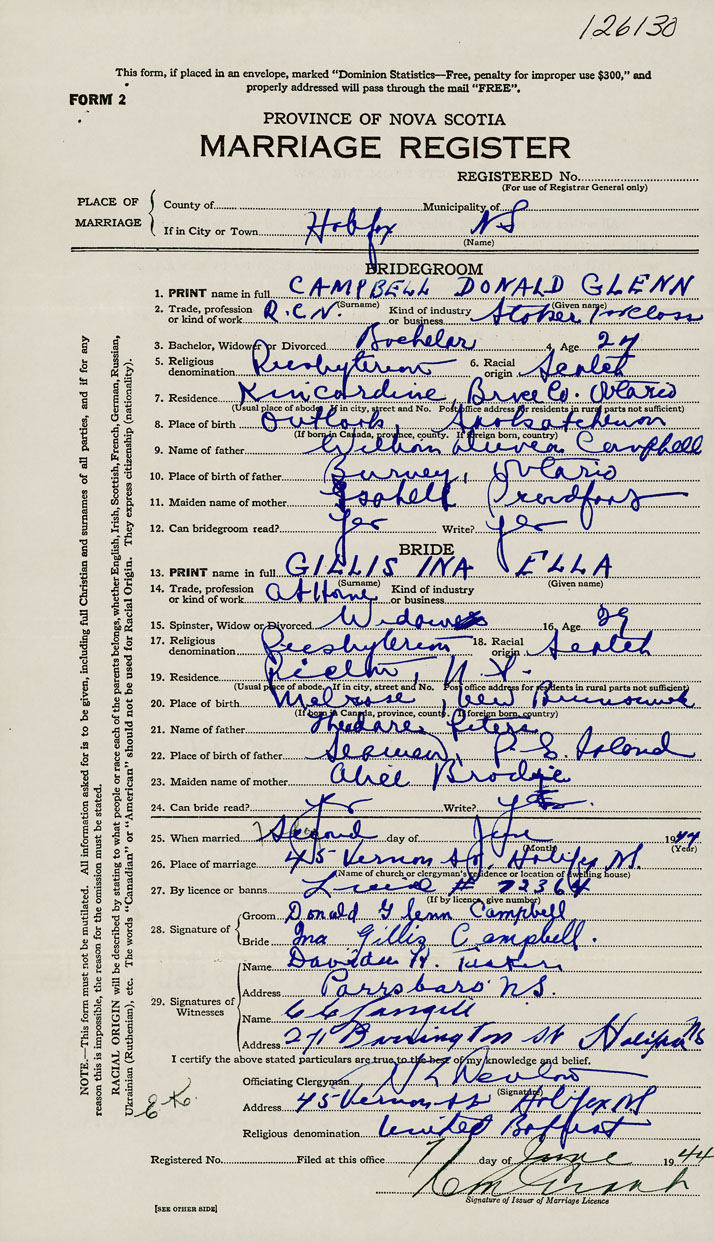 126130
This form, if placed in an envelope, marked "Dominion Statistics—Free, penalty for improper use $300," and
properly addressed will pass through the mail "FREE".
FORM 2
PROVINCE OF NOVA SCOTIA
MARRIAGE REGISTER
REGISTERED No.
(For use of Registrar General only)
PLACE OF MARRIAGE
County of Municipality of
If in City or Town Halifax NS
(Name)
BRIDEGROOM
1. PRINT name in full CAMPBELL DONALD GLENN
(Surname) (Given name)
2. Trade, profession or kind of work R.C.N. Kind of industry or business Stoker 1st Class
3. Bachelor, Widower or Divorced Bachelor 4. Age 27
5. Religious denomination Presbyterian 6. Racial origin Scotch
7. Residence Kincardine, Bruce Co. Ontario
(Usual place of abode. If in city, street and No. Post office address for residents in rural parts not sufficient)
8. Place of birth Outlook, Saskatchewan
(If born in Canada, province, county. If foreign born, country)
9. Name of father William Campbell
10. Place of birth of father Ontario
11. Maiden name of mother Isabell
12. Can bridegroom read? yes Write? yes
BRIDE
13. PRINT name in full GILLIS INA ELLA
(Surname) (Given name)
14. Trade, profession or kind of work At Home Kind of industry or business
15. Spinster, Widow or Divorced Widow 16. Age 29
17. Religious denomination Presbyterian 18. Racial origin Scotch
19. Residence
(Usual place of abode. If in city, street and No. Post office address for residents in rural parts not sufficient)
20. Place of birth Melrose, New Brunswick
(If born in Canada, province, county. If foreign born, country)
21. Name of father Peters
22. Place of birth of father P. E. Island
23. Maiden name of mother Brodie
24. Can bride read? yes Write? yes
25. When married Second day of June 1944
(Month) (Year)
26. Place of marriage 45 Vernon St. Halifax NS
(Name of church or clergyman's residence or location of dwelling house)
27. By licence or banns # 72364
(If by licence, give number)
28. Signature of
Groom Donald Glenn Campbell
Bride Ina Gillis Campbell.
29. Signatures of Witnesses
Name
Address Parrsboro NS.
Name C C Langill
Address 271 St Halifax NS
I certify the above stated particulars are true to the best of my knowledge and belief.
Officiating Clergyman
(Signature)
Address 45 Vernon St Halifax NS
Religious denomination United Baptist
Registered No. Filed at this office 7 day of June 1944
Signature of Issuer of Marriage Licence
[SEE OTHER SIDE]
NOTE.—This form must not be mutilated. All information asked for is to be given, including full Christian and surnames of all parties, and if for any
reason this is impossible, the reason for the omission must be stated.
RACIAL ORIGIN will be described by stating to what people or race each of the parents belongs, whether English, Irish, Scottish, French, German, Russian,
Ukrainian (Ruthenian), etc. The words "Canadian" or "American" should not be used for Racial Origin. They express citizenship (nationality).
E.K.